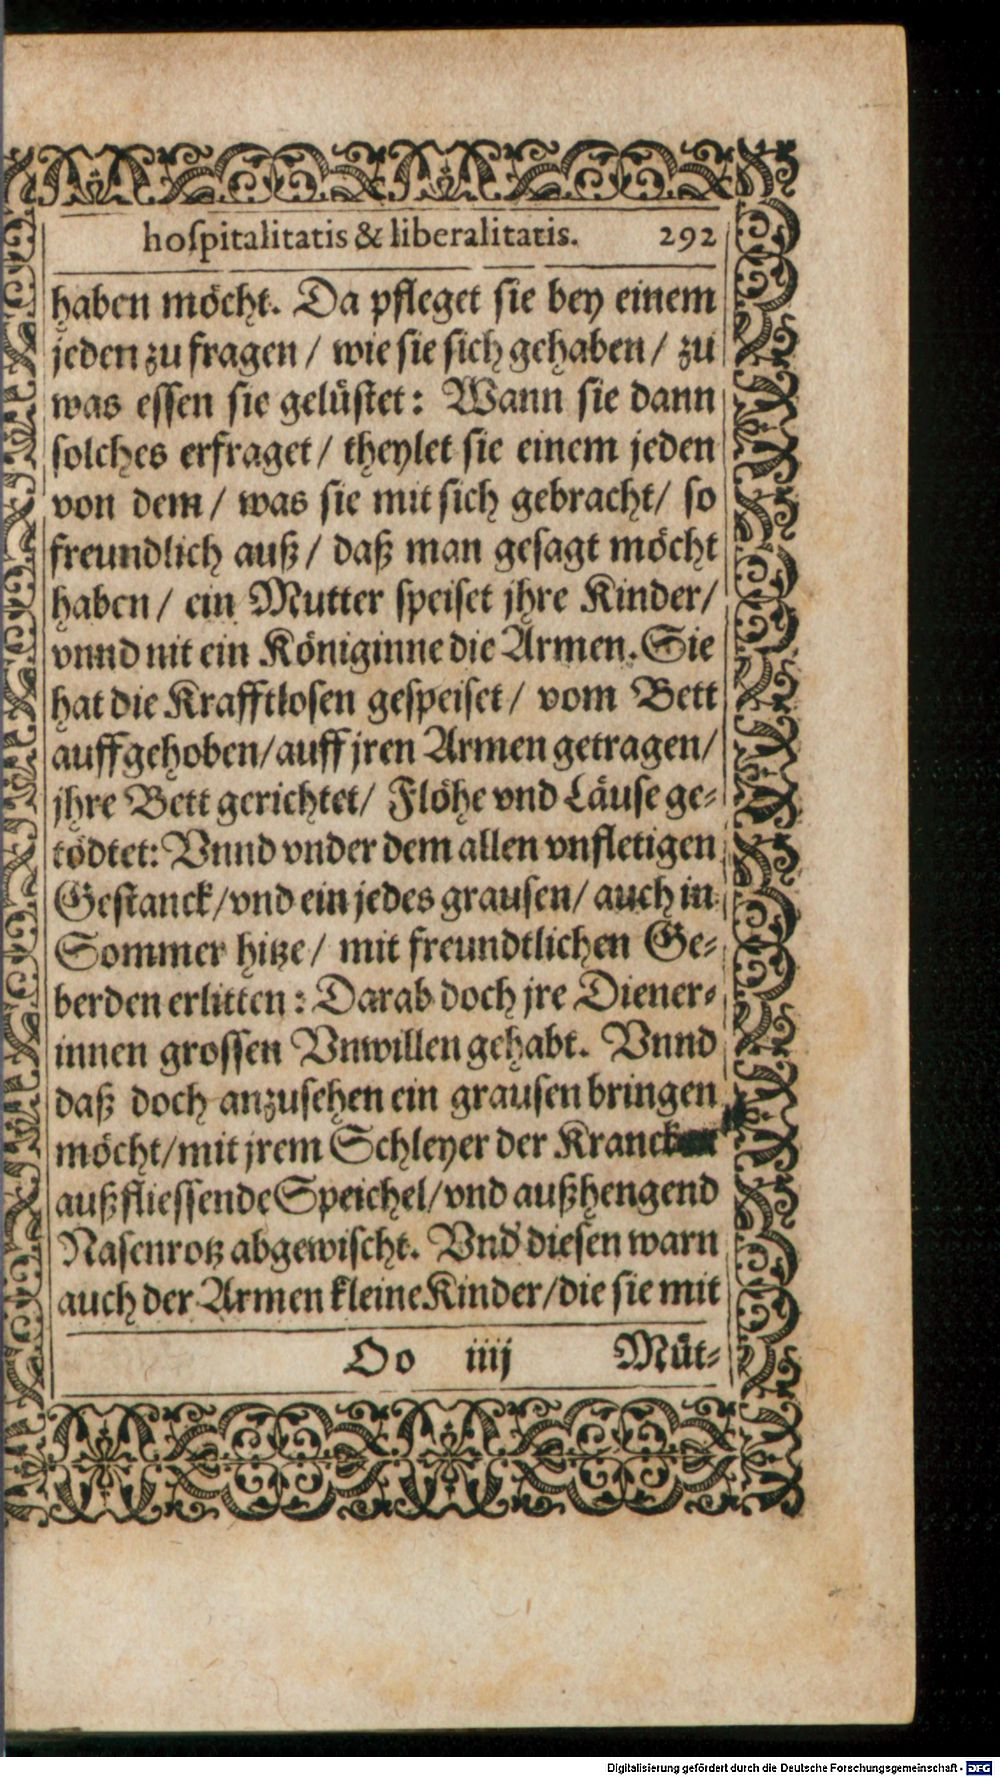 hoſpitalitatis & liberalitatis. 292
haben möcht. Da pfleget ſie bey einem
jeden zu fragen / wie ſie ſich gehaben / zu
was eſſen ſie gelüſtet: Wann ſie dann
ſolches erfraget / theylet ſie einem jeden
von dem / was ſie mit ſich gebracht / ſo
freundlich auß / daß man geſagt möcht
haben / ein Mutter ſpeiſet jhre Kinder /
vnnd nit ein Königinne die Armen. Sie
hat die Krafftloſen geſpeiſet / vom Bett
auffgehoben / auff jren Armen getragen /
jhre Bett gerichtet / Flöhe vnd Läuſe ge⸗
tödtet: Vnnd vnder dem allen vnfletigen
Geſtanck / vnd ein jedes grauſen / auch in
Sommer hitze / mit freundtlichen Ge⸗
berden erlitten: Darab doch jre Diener⸗
innen groſſen Vnwillen gehabt. Vnnd
daß doch anzuſehen ein grauſen bringen
möcht / mit jrem Schleyer der Kranck
außflieſſende Speichel / vnd außhengend
Naſenrotz abgewiſcht. Vnd dieſen warn
auch der Armen kleine Kinder / die ſie mit
Oo iiij Müt⸗
Digitalisierung gefördert durch die Deutsche Forschungsgemeinschaft - DFG